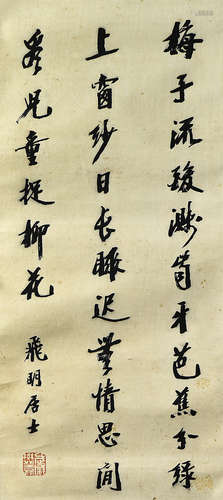 梅子流酸濺齒牙芭蕉分綠
上窗紗日長睡起無情思閒
看兒童捉柳花
飛明居士